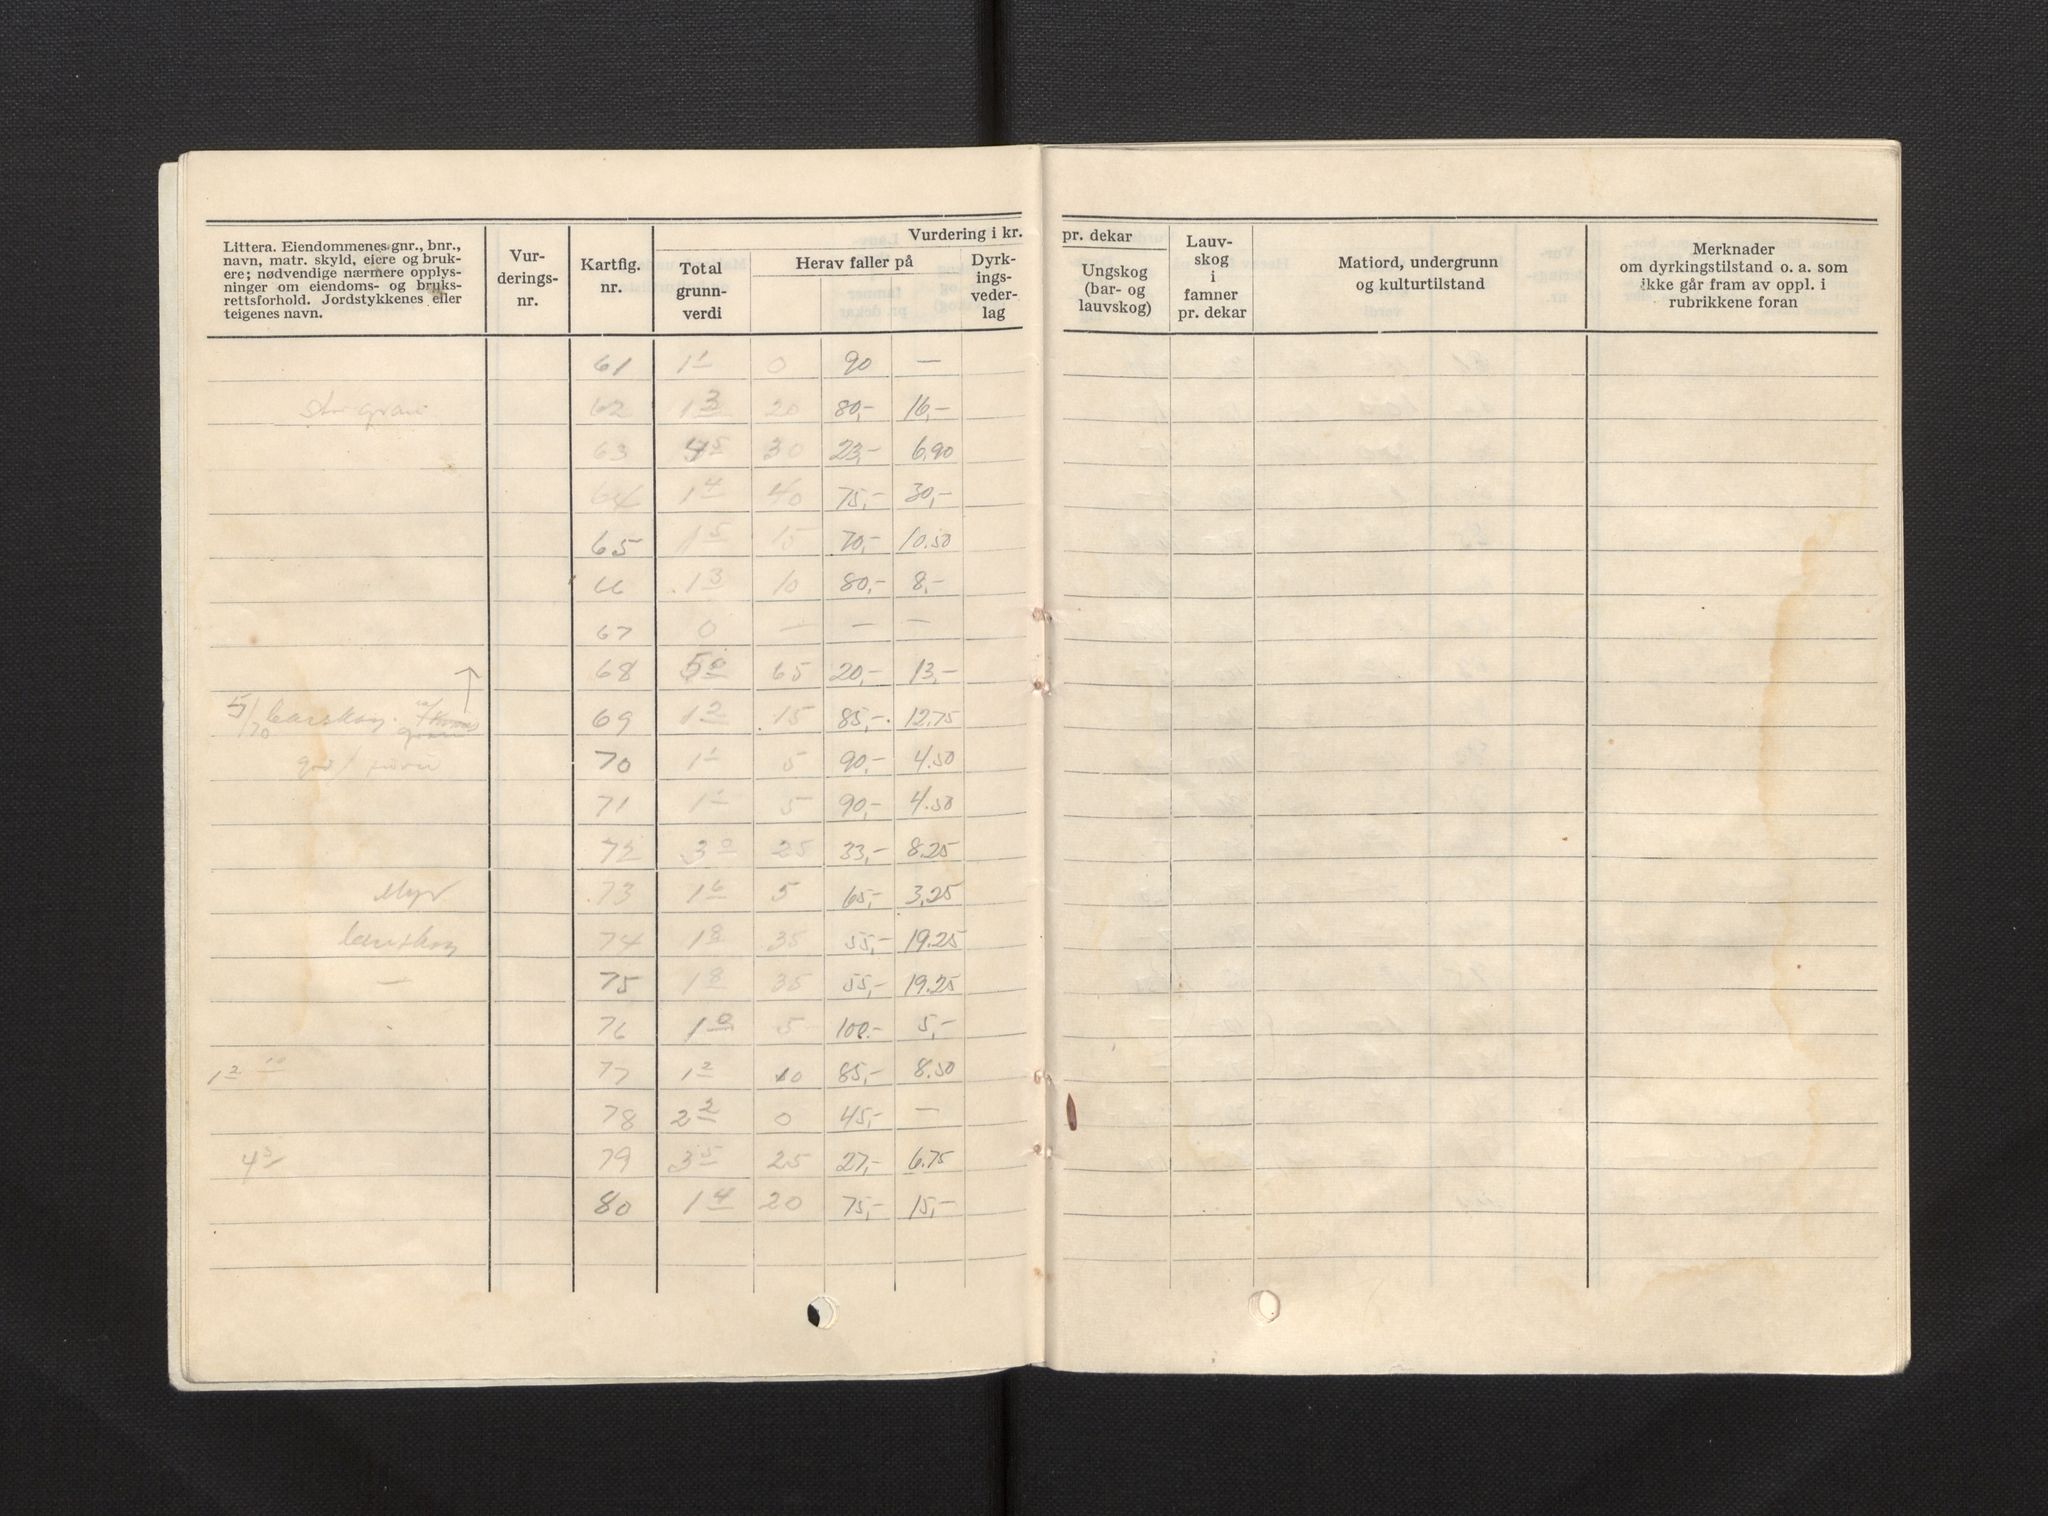 Littera. Eiendommenes gnr., bnr.,
navn, matr. skyld, eiere og bruk-
ere; nødvendige nærmere opplys-
ninger om eiendoms- og bruks-
rettsforhold. Jordstykkenes eller
teigenes navn.
Vur-
derings-
nr.
Kartfig.
nr.
Vurdering i kr.
Total
grunn-
verdi
Herav faller på
Dyrk-
ings-
veder-
lag
pr. dekar
Ungskog
(bar- og
lauvskog)
Lauv-
skog
i
famner
pr. dekar
Matjord, undergrunn
og kulturtilstand
Merknader
om dyrkingstilstand o. a. som
ikke går fram av oppl. i
rubrikkene foran
61 1 1 0 90 —
62 1 3 20 80,- 16,-
63 4 5 30 23,- 6,90
64 1 4 40 75,- 30,-
65 1 5 15 70,- 10.50
66 1 3 10 80,- 8,-
67 0 — — —
68 5 0 65 20,- 13,-
5/70 lauvskog. 69 1 2 15 85,- 12.75
70 1 1 5 90,- 4.50
71 1 1 5 90,- 4.50
72 3 0 25 33,- 8.25
Myr 73 1 6 5 65,- 3,25
lauvskog 74 1 8 35 55,- 19.25
— 75 1 8 35 55,- 19.25
76 1 0 5 100.- 5,-
1 2 10 77 1 2 10 85,- 8.50
78 2 2 0 45,- —
4 5 79 3 5 25 27,- 6.75
80 1 4 20 75,- 15,-